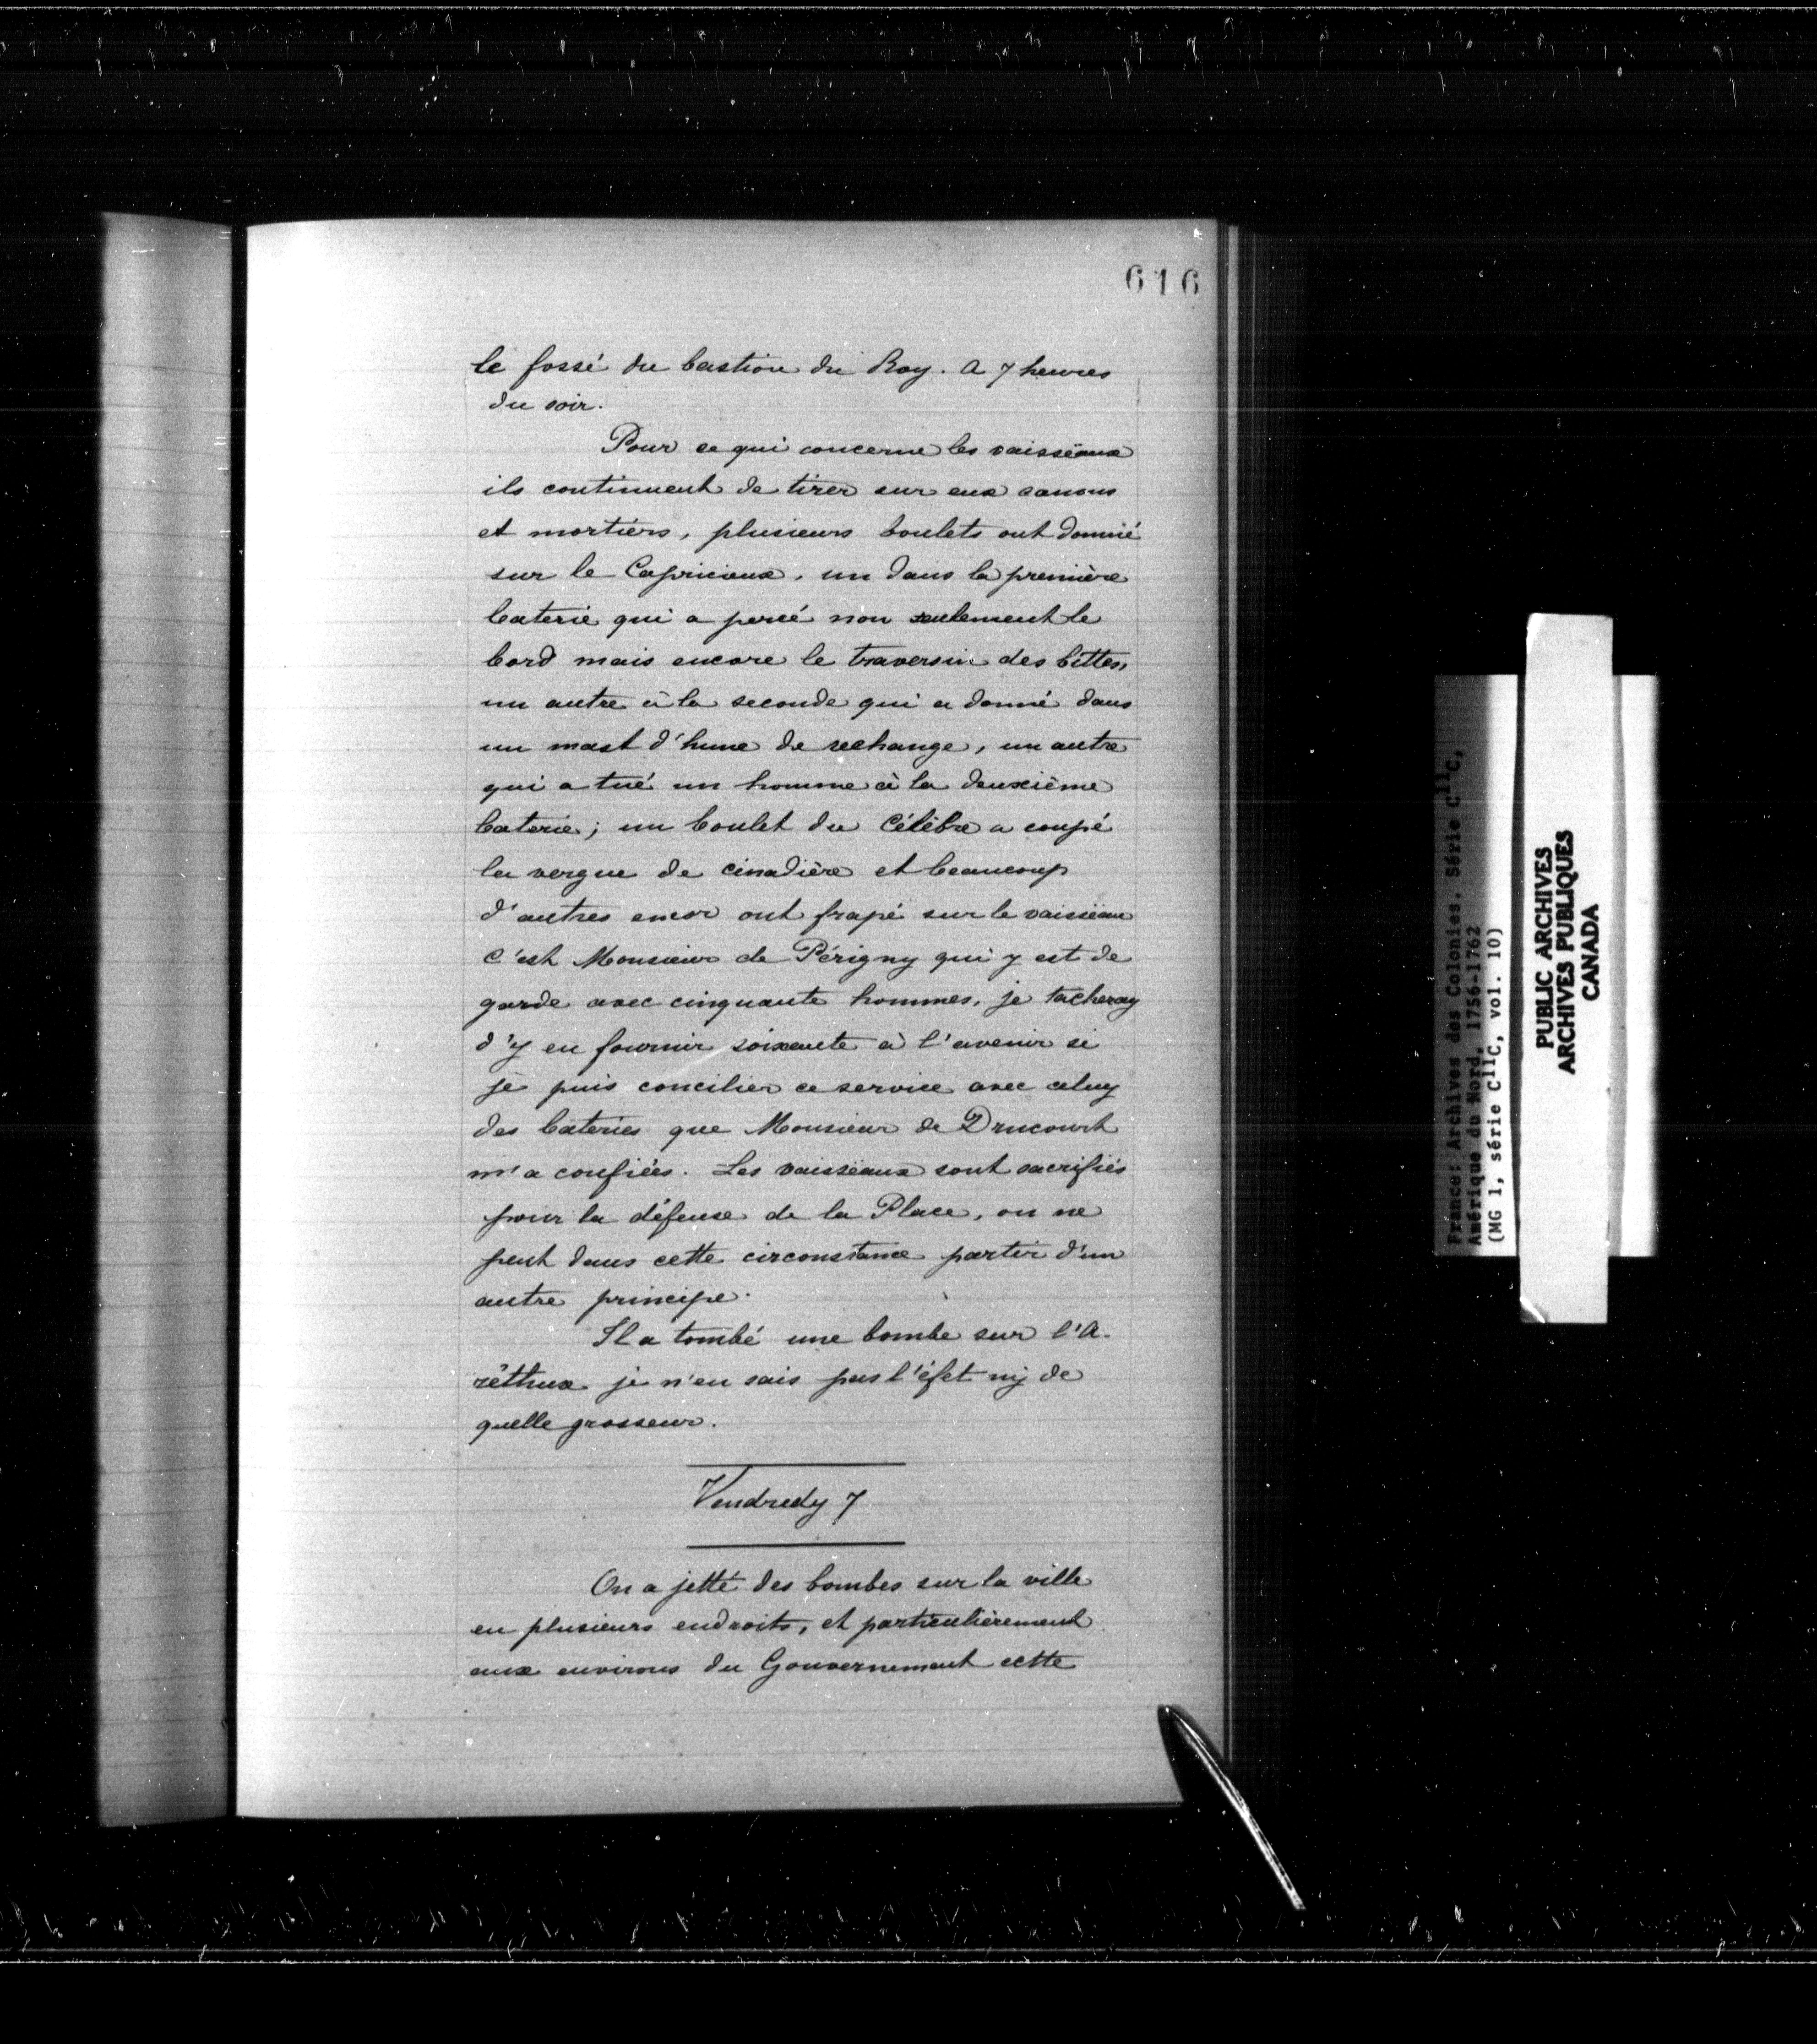 616
le fossé du bastion du Roy. A 7 heures
du soir.
Pour ce qui concerne les vaisseaux
ils continuent de tirer sur eux canons
et mortiers, plusieurs boulets ont donné
sur le Capricieux, un dans la première
baterie qui a percé non seulement le
bord mais encore le traversin des bittes,
un autre à la seconde qui a donné dans
un mast d'hune de rechange, un autre
qui a tué un homme à la deuxième
baterie; un boulet du Célèbre a coupé
la vergue de civadière et beaucoup
d'autres encor ont frapé sur le vaisseau
c'est Monsieur de Périgny qui y est de
garde avec cinquante hommes, je tacheray
d'y en fournir soixante à l'avenir si
je puis concilier ce service avec celuy
des bateries que Monsieur de Drucourt
m'a confiées. Les vaisseaux sont sacrifiés
pour la défense de la Place, on ne
peut dans cette circonstance partir d'un
autre principe.
Il a tombé une bombe sur l'A-
rêthuse je n'en sais pas l'éfet ny de
quelle grosseur.
Vendredy 7
On a jetté des bombes sur la ville
en plusieurs endroits, et particulièrement
aux environs du Gouvernement cette
France: Archives des Colonies. Série C11C,
Amérique du Nord, 1756-1762
(MG 1, série C11C, vol. 10)
PUBLIC ARCHIVES
ARCHIVES PUBLIQUES
CANADA